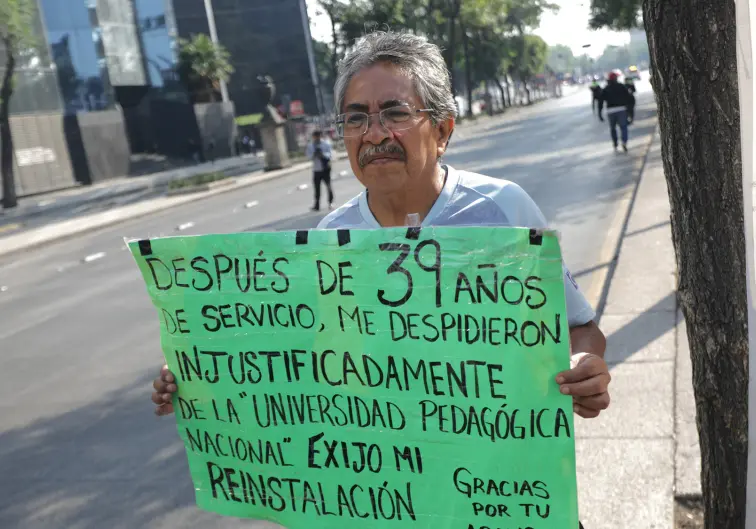 DESPUÉS DE 39 AÑOS
DE SERVICIO, ME DESPIDIERON
INJUSTIFICADAMENTE
DE LA "UNIVERSIDAD PEDAGÓGICA
NACIONAL" EXIJO MI
REINSTALACIÓN
GRACIAS
POR TU